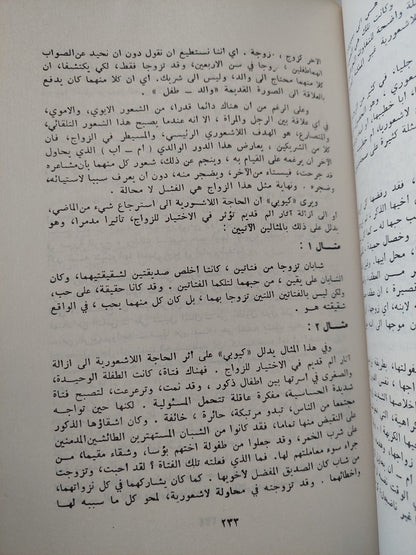 الآخر تزوج ، زوجة . اي اننا نستطيع ان نقول دون ان نحيد عن الصواب
انهما طفلين ، زوجا في سن الاربعين، وقد تزوجا فقط، لكي يكتشفا، ان
كلا منهما محتاج الى والد، وليس الى شريك. اي ان كلا منهما كان يدفع
بالعلاقة الى الصورة القديمة «والد ـــ طفل»
وعلى الرغم من ان هناك دائما قدرا، من الشعور الابوي، والاموي،
في اي علاقة بين الرجل والمرأة ، الا انه عندما يصبح هذا الشعور التلقائي،
والمتصارع، هو الهدف اللاشعوري الرئيسي، والمسيطر في الزواج، فان
كلا من الشريكين ، يعارض هذا الدور الوالدي ( ام ــ اب ) الذي يحاول
الآخر ان يرغمه على القيام به ، وينجم عن ذلك، شعور كل منهما بان مشاعره
قد جرحت، فيستاء من الآخر، ويضجر منه، دون ان يعرف سببا لاستيائه،
وضجره . ونهاية مثل هذا الزواج هي الفشل لا محالة .
ويرى «كيوبي» ان الحاجة اللاشعورية الى استرجاع شيء من الماضي،
او الى ازالة آثار الم قديم تؤثر في الاختيار للزواج، تأثيرا مدمرا، وهو
يدلل على ذلك بالمثالين الآتيين :
مثال ١ :
شابان تزوجا من فتاتين ، كانتا اخلص صديقتين لشقيقتيهما، وكان
الشابان على يقين، من حبهما لتلكما الفتاتين . وقد كانا حقيقة، على حب،
ولكن ليس بالفتاتين اللتين تزوجا بهما ، بل كان كل منهما يحب، في الواقع
شقيقته هو .
مثال ٢ :
وفي هذا المثال يدلل «كيوبي» على اثر الحاجة اللاشعورية الى ازالة
آثار الم قديم في الاختيار للزواج. فهناك فتاة، كانت الطفلة الوحيدة،
والصغرى في اسرتها بين اطفال ذكور ، وقد نمت، وترعرعت، لتصبح فتاة
شديدة الحساسية، مفكرة عاقلة تتحمل المسئولية . لكنها حين تواجه
مجتمعا من الناس، تبدو مرتبكة، حائرة ، خائفة . وكان اشقاؤها الذكور
على النقيض منها تماما، فقد كانوا من الشبان المستهترين الطائشين المدمنين
على شرب الخمر، وقد جعلوا من طفولة اختهم بؤسا، وشقاء مقيما، من
جراء سوء معاملتهم لها. فما الذي فعلته تلك الفتاة ؟ لقد احبت، وتزوجت
من شاب كان الصديق المفضل لأخويها . كما كان يشاركهما في كل نزواتهما،
واخطائهما . وقد تزوجته في محاولة لاشعورية، لمحو كل ما سببه لها
٢٣٣